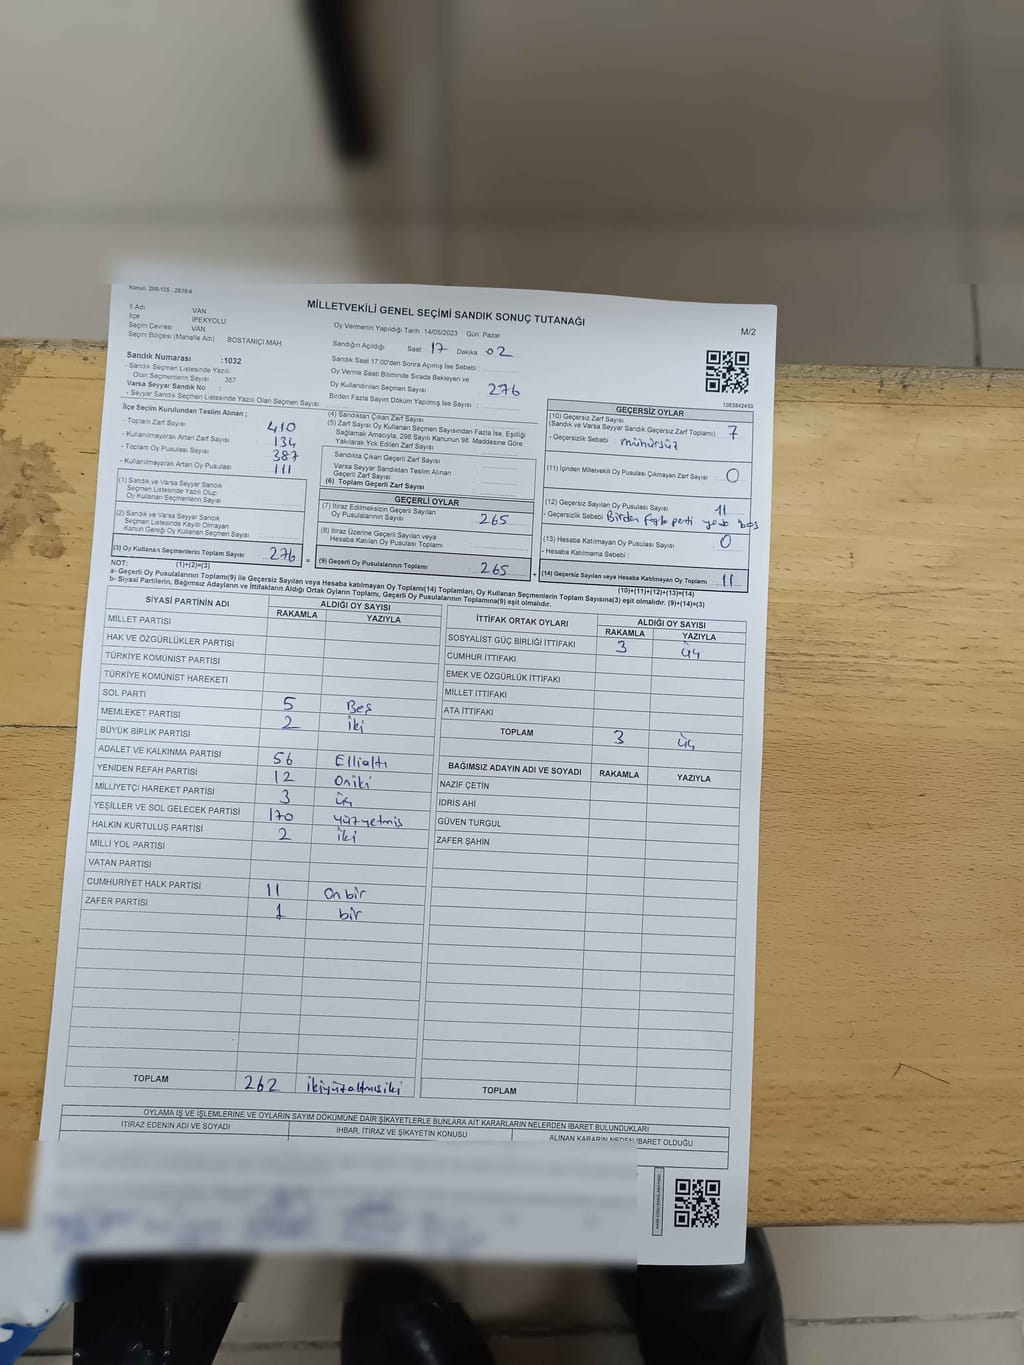 Kanun: 298/105 ; 2839/4
MİLLETVEKİLİ GENEL SEÇİMİ SANDIK SONUÇ TUTANAĞI
M/2
İl Adı VAN
İlçe İPEKYOLU
Seçim Çevresi VAN
Seçim Bölgesi (Mahalle Adı) BOSTANİÇİ MAH
Sandık Numarası :1032
- Sandık Seçmen Listesinde Yazılı
Olan Seçmenlerin Sayısı 357
Varsa Seyyar Sandık No :
- Seyyar Sandık Seçmen Listesinde Yazılı Olan Seçmen Sayısı:
Oy Vermenin Yapıldığı Tarih 14/05/2023 Gün: Pazar
Sandığın Açıldığı Saat 17 Dakika 02
Sandık Saat 17:00'den Sonra Açılmış İse Sebebi :
Oy Verme Saati Bitiminde Sırada Bekleyen ve
Oy Kullandırılan Seçmen Sayısı 276
Birden Fazla Sayım Döküm Yapılmış İse Sayısı :
1083842455
İlçe Seçim Kurulundan Teslim Alınan ;
- Toplam Zarf Sayısı 410
- Kullanılmayarak Artan Zarf Sayısı 134
- Toplam Oy Pusulası Sayısı 387
- Kullanılmayarak Artan Oy Pusulası 111
(1) Sandık ve Varsa Seyyar Sandık
Seçmen Listesinde Yazılı Olup
Oy Kullanan Seçmen Sayısı
(2) Sandık ve Varsa Seyyar Sandık
Seçmen Listesinde Kayıtlı Olmayan
Kanun Gereği Oy Kullanan Seçmen Sayısı
(3) Oy Kullanan Seçmenlerin Toplam Sayısı 276
(1)+(2)=(3)
(4) Sandıktan Çıkan Zarf Sayısı
(5) Zarf Sayısı Oy Kullanan Seçmen Sayısından Fazla İse, Eşitliği
Sağlamak Amacıyla, 298 Sayılı Kanunun 98. Maddesine Göre
Yakılarak Yok Edilen Zarf Sayısı
Sandıkta Çıkan Geçerli Zarf Sayısı
Varsa Seyyar Sandıktan Teslim Alınan
Geçerli Zarf Sayısı
(6) Toplam Geçerli Zarf Sayısı
GEÇERLİ OYLAR
(7) İtiraz Edilmeksizin Geçerli Sayılan
Oy Pusulalarının Sayısı 265
(8) İtiraz Üzerine Geçerli Sayılan veya
Hesaba Katılan Oy Pusulası Toplamı
= (9) Geçerli Oy Pusulalarının Toplamı 265
GEÇERSİZ OYLAR
(10) Geçersiz Zarf Sayısı
(Sandık ve Varsa Seyyar Sandık Geçersiz Zarf Toplamı) 7
- Geçersizlik Sebebi : mühürsüz
(11) İçinden Milletvekili Oy Pusulası Çıkmayan Zarf Sayısı 0
(12) Geçersiz Sayılan Oy Pusulası Sayısı 11
- Geçersizlik Sebebi Birden fazla parti boş
(13) Hesaba Katılmayan Oy Pusulası Sayısı 0
- Hesaba Katılmama Sebebi :
+ (14) Geçersiz Sayılan veya Hesaba Katılmayan Oy Toplamı 11
(10)+(11)+(12)+(13)=(14)
NOT:
a- Geçerli Oy Pusulalarının Toplamı(9) ile Geçersiz Sayılan veya Hesaba katılmayan Oy Toplamı(14) Toplamları, Oy Kullanan Seçmenlerin Toplam Sayısına(3) eşit olmalıdır. (9)+(14)=(3)
b- Siyasi Partilerin, Bağımsız Adayların ve İttifakların Aldığı Ortak Oyların Toplamı, Geçerli Oy Pusulalarının Toplamına(9) eşit olmalıdır.
SİYASİ PARTİNİN ADI ALDIĞI OY SAYISI
RAKAMLA YAZIYLA
MİLLET PARTİSİ
HAK VE ÖZGÜRLÜKLER PARTİSİ
TÜRKİYE KOMÜNİST PARTİSİ
TÜRKİYE KOMÜNİST HAREKETİ
SOL PARTİ 5 Beş
MEMLEKET PARTİSİ 2 iki
BÜYÜK BİRLİK PARTİSİ
ADALET VE KALKINMA PARTİSİ 56 Ellialtı
YENİDEN REFAH PARTİSİ 12 Oniki
MİLLİYETÇİ HAREKET PARTİSİ 3 üç
YEŞİLLER VE SOL GELECEK PARTİSİ 170 yüzyetmiş
HALKIN KURTULUŞ PARTİSİ 2 iki
MİLLİ YOL PARTİSİ
VATAN PARTİSİ
CUMHURİYET HALK PARTİSİ 11 Onbir
ZAFER PARTİSİ 1 bir
TOPLAM 262 ikiyüzaltmışiki
İTTİFAK ORTAK OYLARI ALDIĞI OY SAYISI
RAKAMLA YAZIYLA
SOSYALİST GÜÇ BİRLİĞİ İTTİFAKI 3 üç
CUMHUR İTTİFAKI
EMEK VE ÖZGÜRLÜK İTTİFAKI
MİLLET İTTİFAKI
ATA İTTİFAKI
TOPLAM 3 üç
BAĞIMSIZ ADAYIN ADI VE SOYADI RAKAMLA YAZIYLA
NAZİF ÇETİN
İDRİS AHİ
GÜVEN TURGUL
ZAFER ŞAHİN
TOPLAM
OYLAMA İŞ VE İŞLEMLERİNE VE OYLARIN SAYIM DÖKÜMÜNE DAİR ŞİKAYETLERLE BUNLARA AİT KARARLARIN NELERDEN İBARET BULUNDUKLARI
İTİRAZ EDENİN ADI VE SOYADI İHBAR, İTİRAZ VE ŞİKAYETİN KONUSU ALINAN KARARIN NEDEN İBARET OLDUĞU